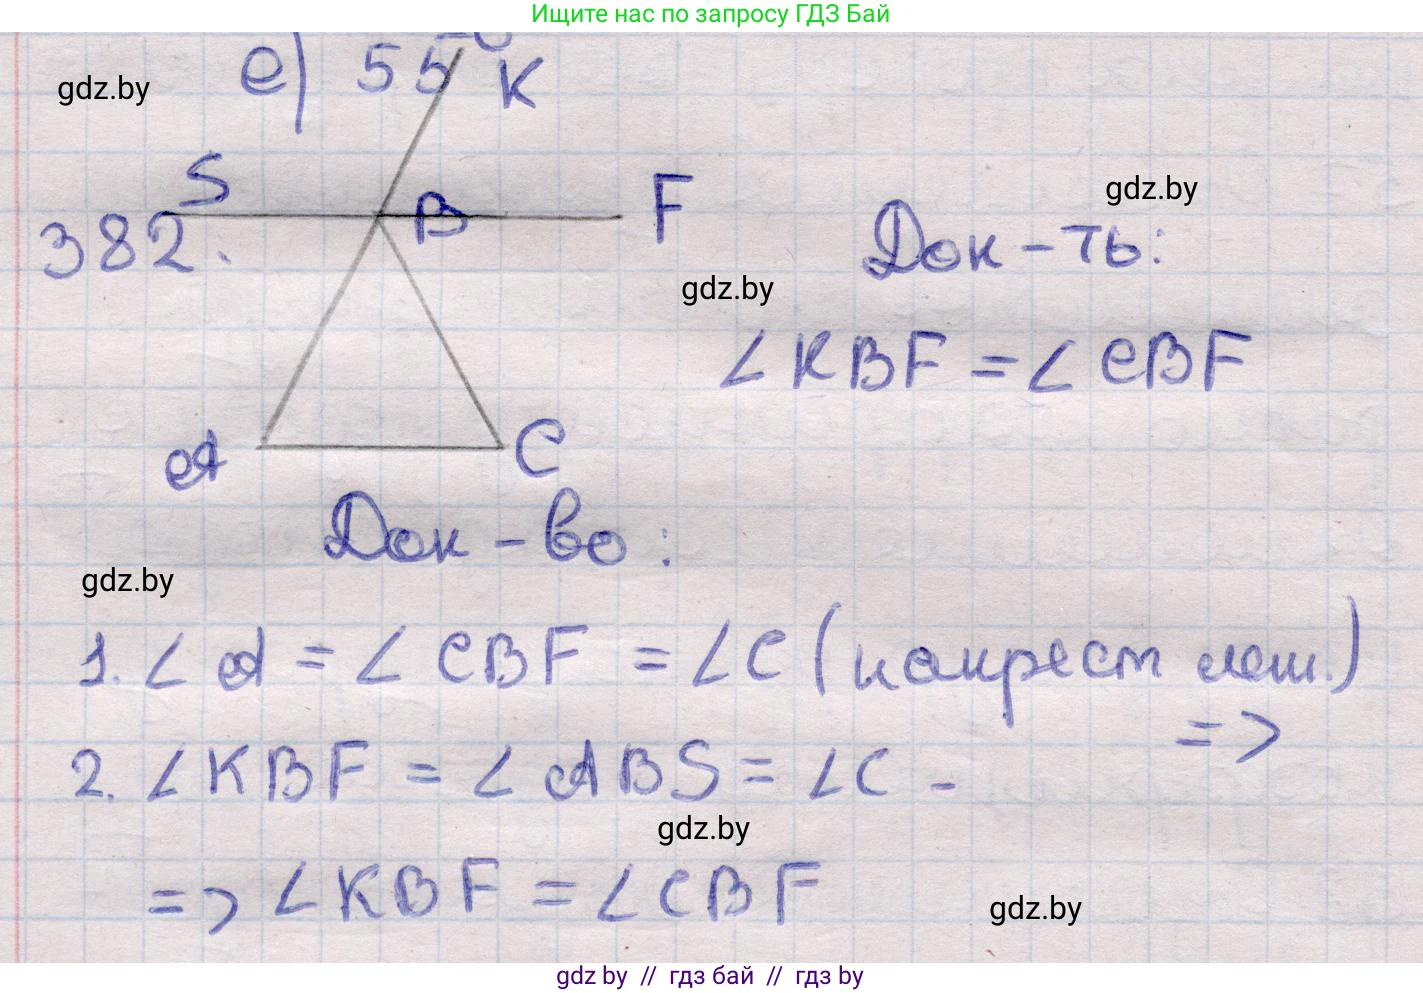 Ищите нас по запросу ГДЗ Бай
е) 55°
K
gdz.by
S
F
gdz.by
B
382.
Док-ть:
gdz.by
∠KBF = ∠CBF
A
C
Док-во:
gdz.by
1. ∠A = ∠CBF = ∠C (накрест леш.)
=>
2. ∠KBF = ∠ABS = ∠C -
gdz.by
=> ∠KBF = ∠CBF
gdz.by
gdz.by // гдз бай // гдз by